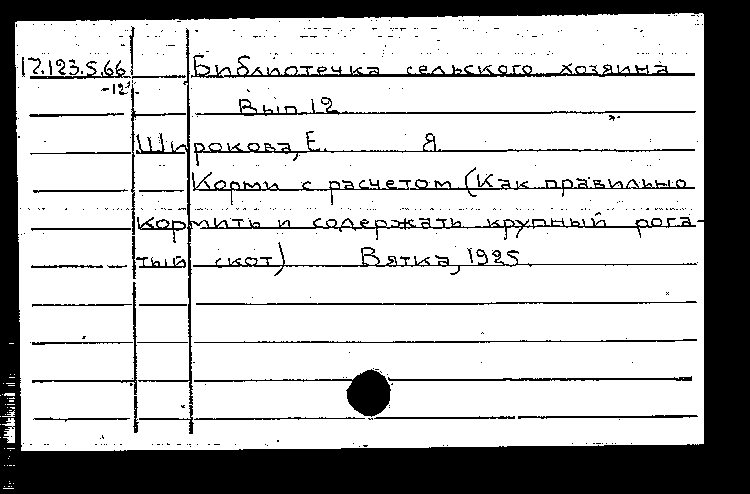 12.123.5.66 Библиотечка сельского хозяина
-12 Вып. 12
Широкова, Е. Я.
Корми с расчетом (Как правильно
кормить и содержать крупный рога-
тый скот) Вятка, 1925.